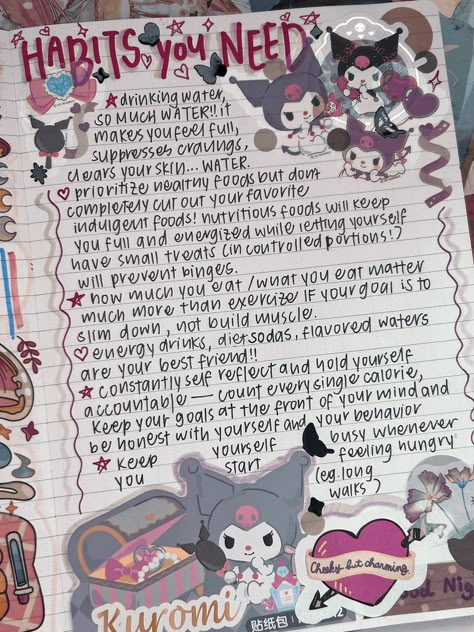 HABITS YOU NEED
drinking water,
SO MUCH WATER!! it
makes you feel full,
suppresses cravings,
clears your skin... WATER.
prioritize healthy foods but dont
completely cut out your favorite
indulgent foods! nutritious foods will keep
you full and energized while letting yourself
have small treats (in controlled portions!)
will prevent binges.
how much you eat/what you eat matter
much more than exercize IF your goal is to
slim down, not build muscle.
energy drinks, diet sodas, flavored waters
are your best friend!!
constantly self reflect and hold yourself
accountable — count every single calorie,
keep your goals at the front of your mind and
be honest with yourself and your behavior
keep yourself busy whenever
you start feeling hungry
(eg. long
walks)
Cheeky but charming.
Kuromi
贴纸包